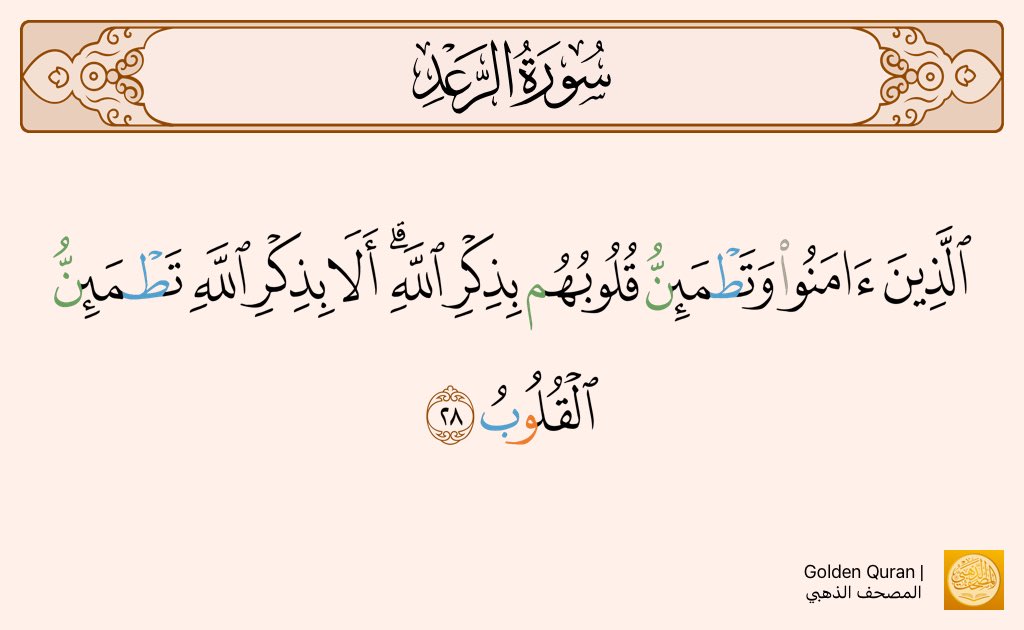 سُورَةُ الرَّعْدِ
ٱلَّذِينَ ءَامَنُوا۟ وَتَطْمَئِنُّ قُلُوبُهُم بِذِكْرِ ٱللَّهِ ۗ أَلَا بِذِكْرِ ٱللَّهِ تَطْمَئِنُّ
ٱلْقُلُوبُ ٢٨
Golden Quran |
المصحف الذهبي